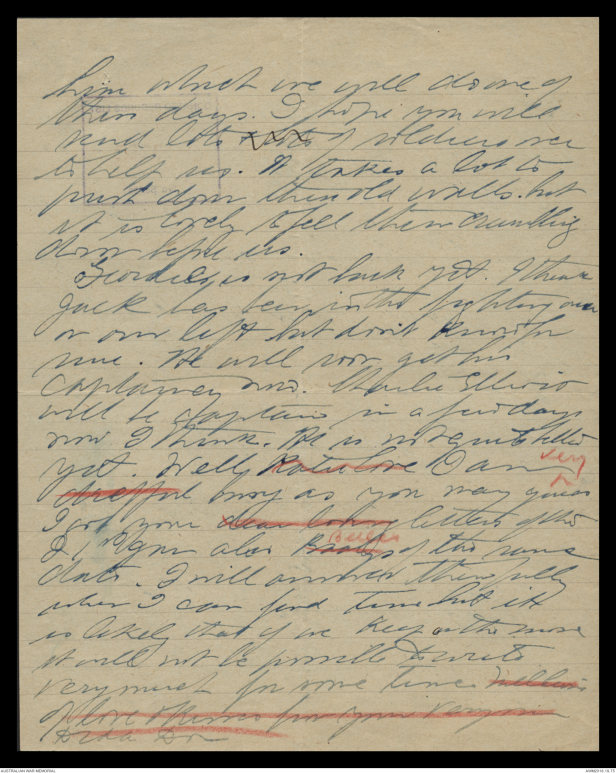 him which we will do one of
these days. I hope you will
send lots & lots of soldiers over
to help us. It takes a lot to
push down these old walls. but
it is lovely to feel them crumbling
down before us.
is not back yet. I think
Jack has been in the fighting over
on our left but don't know for
sure. He will soon get his
Captaincy now. Charlie Elliott
will be Captain in a few days
now I think. He is not quite
yet. Well, I am very
busy as you may guess
I got your dear loving letters of the
also of the same
date. I will answer them fully
when I can find time but it
is likely that if we keep on the move
it will not be possible to write
very much for some time. Millions
of love & kisses for you
Dada
AUSTRALIAN WAR MEMORIAL